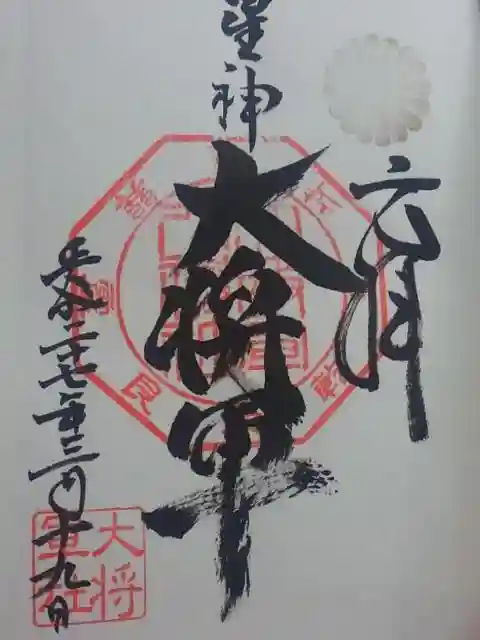 奉拝
星神
大将軍
平成二十七年三月十九日
大将
軍社
巽
震
艮